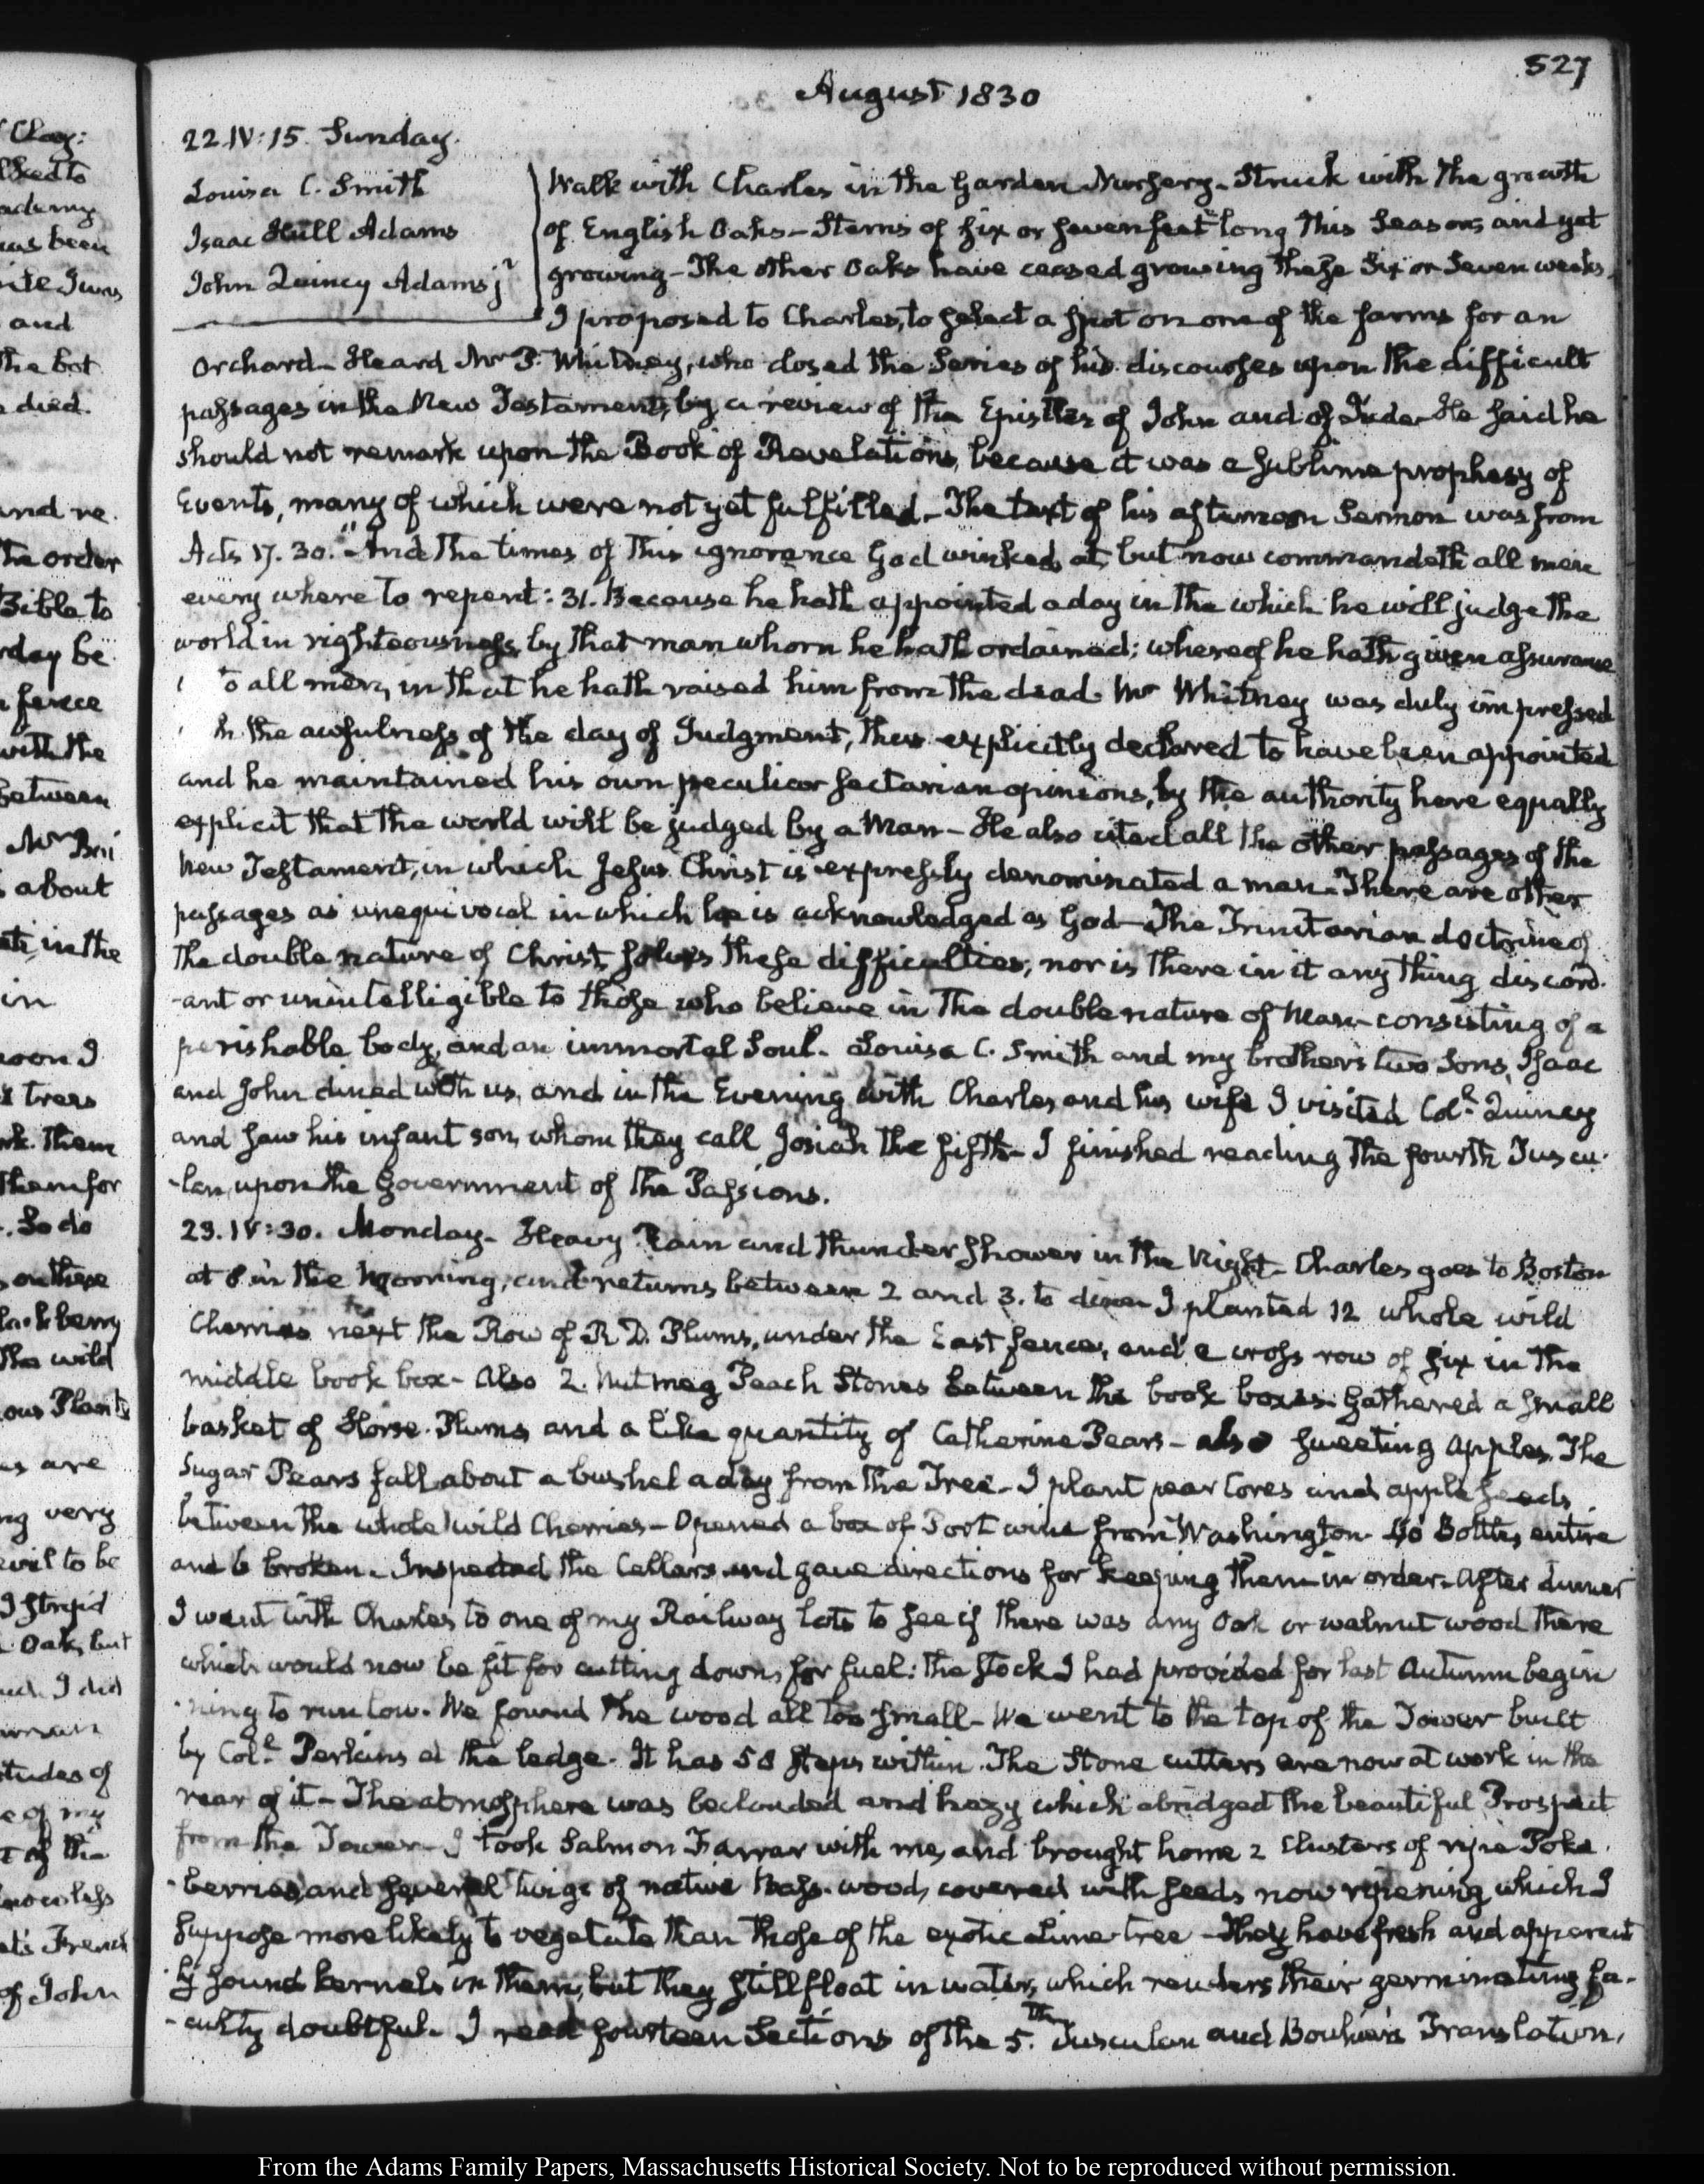 527
August 1830
22. IV: 15. Sunday.
Louisa C. Smith
Isaac Hull Adams
John Quincy Adams jr
Walk with Charles in the Garden Nursery - Struck with the growth
of English Oaks - Stems of six or seven feet long this Season, and yet
growing - The other Oaks have ceased growing these Six or Seven weeks.
I proposed to Charles, to select a spot on one of the farms for an
Orchard - Heard Mr P. Whitney, who closed the Series of his discourses upon the difficult
passages in the New Testament, by a review of the Epistles of John and of Jude - He said he
should not remark upon the Book of Revelations, because it was a sublime prophesy of
Events, many of which were not yet fulfilled - The text of his afternoon Sermon was from
Acts 17. 30. "And the times of this ignorance God winked at, but now commandeth all men
every where to repent: 31. Because he hath appointed a day in the which he will judge the
world in righteousness, by that man whom he hath ordained; whereof he hath given assurance
to all men, in that he hath raised him from the dead. Mr Whitney was duly impressed
the awfulness of the day of Judgment, thus explicitly declared to have been appointed
and he maintained his own peculiar sectarian opinions, by the authority here equally
explicit that the world will be judged by a Man - He also cited all the other passages of the
New Testament, in which Jesus Christ is expressly denominated a man - There are other
passages as unequivocal in which he is acknowledged as God - The Trinitarian doctrine of
the double nature of Christ, solves these difficulties, nor is there in it any thing discord-
-ant or unintelligible to those who believe in the double nature of Man - consisting of a
perishable body, and an immortal Soul. Louisa C. Smith and my brother's two Sons, Isaac
and John dined with us, and in the Evening with Charles and his wife I visited Coll. Quincy
and saw his infant son, whom they call Josiah the fifth - I finished reading the fourth Tuscu-
-lan, upon the Government of the Passions.
23. IV: 30. Monday - Heavy Rain and thunder shower in the Night - Charles goes to Boston
at 8 in the Morning, and returns between 2 and 3. to dine - I planted 12 whole wild
Cherries next the Row of R. D. Plums, under the East fence, and a cross row of six in the
middle book box - Also 2. Nutmeg Peach Stones between the book boxes. Gathered a small
basket of Horse Plums and a like quantity of Catherine Pears - also sweeting apples. The
Sugar Pears fall about a bushel a day from the Tree - I plant pear Cores and apple seeds
between the whole wild Cherries - Opened a box of Port wine from Washington. 40 Bottles, entire
and 6 broken. Inspected the Cellars and gave directions for keeping them in order. After dinner
I went with Charles to one of my Railway lots to see if there was any Oak or walnut wood there
which would now be fit for cutting down, for fuel: the stock I had provided for last Autumn begin
-ning to run low. We found the wood all too small - We went to the top of the Tower built
by Coll. Perkins at the ledge. It has 58 steps within. The Stone cutters are now at work in the
rear of it - The atmosphere was beclouded and hazy which abridged the beautiful Prospect
from the Tower - I took Salmon Farrar with me, and brought home 2 Clusters of ripe Poke
-berries, and several twigs of native Bass-wood, covered with seeds now ripening which I
suppose more likely to vegetate than those of the exotic Lime-tree - They have fresh and apparent
ly sound kernels in them, but they still float in water, which renders their germinating fa-
-culty doubtful. I read fourteen Sections of the 5.th Tusculan and Bouhier's Translation.
Clay:
ademy
has been
and
The bot
died.
and re
the order
Bible to
day be
fence
with the
between
about
in the
in
noon I
trees
them
them for
So do
on these
The wild
are
very
evil to be
Oak, but
I did
of my
of the
of John
From the Adams Family Papers, Massachusetts Historical Society. Not to be reproduced without permission.